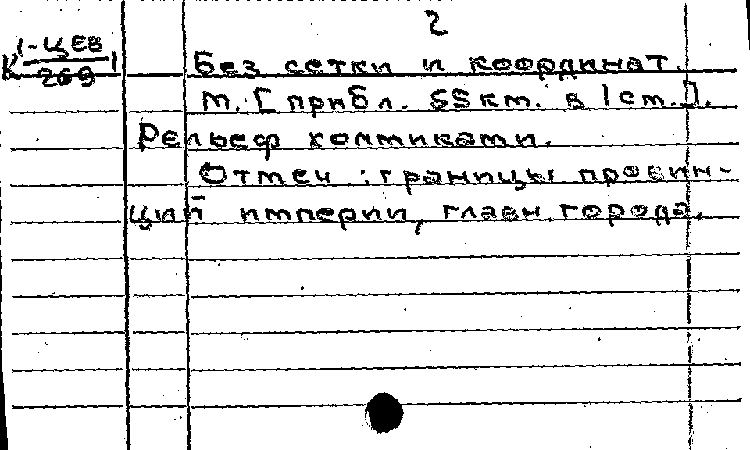 2
К 1-ЦЕВ/269 1
Без сетки и координат.
М. [прибл. 55 км. в 1 см.].
Рельеф холмиками.
Отмеч: границы провин-
ций империи, главн. города.